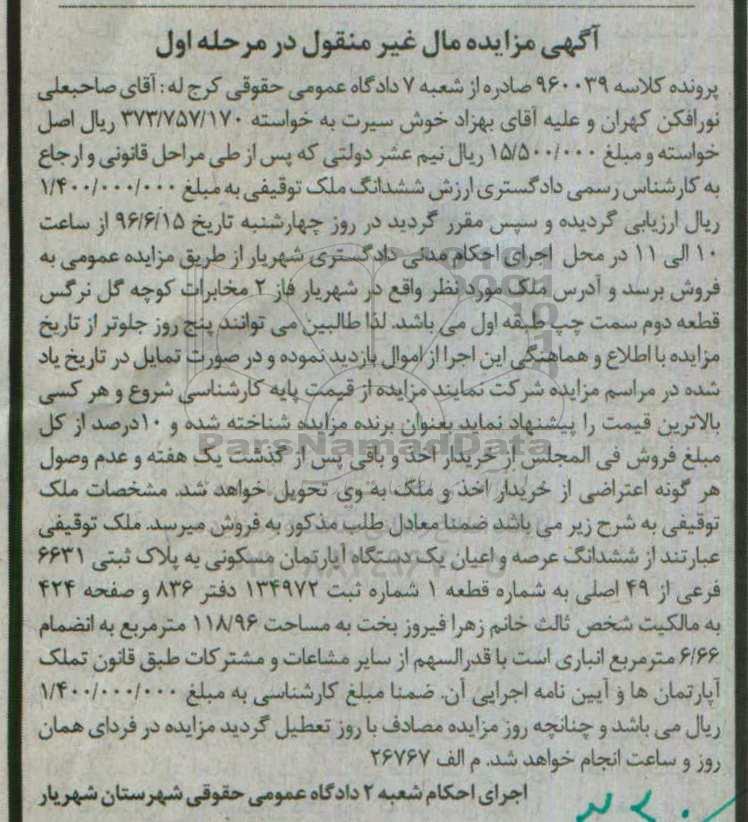 آگهی مزایده مال غیر منقول در مرحله اول
پرونده کلاسه ۹۶۰۰۳۹ صادره از شعبه ۷ دادگاه عمومی حقوقی کرج له : آقای صاحبعلی
نورافکن کهران و علیه آقای بهزاد خوش سیرت به خواسته ۳۷۳/۷۵۷/۱۷۰ ریال اصل
خواسته و مبلغ ۱۵/۵۰۰/۰۰۰ ریال نیم عشر دولتی که پس از طی مراحل قانونی و ارجاع
به کارشناس رسمی دادگستری ارزش ششدانگ ملک توقیفی به مبلغ ۱/۴۰۰/۰۰۰/۰۰۰
ریال ارزیابی گردیده و سپس مقرر گردید در روز چهارشنبه تاریخ ۹۶/۶/۱۵ از ساعت
۱۰ الی ۱۱ در محل اجرای احکام مدنی دادگستری شهریار از طریق مزایده عمومی به
فروش برسد و آدرس ملک مورد نظر واقع در شهریار فاز ۲ مخابرات کوچه گل نرگس
قطعه دوم سمت چپ طبقه اول می باشد. لذا طالبین می توانند پنج روز جلوتر از تاریخ
مزایده با اطلاع و هماهنگی این اجرا از اموال بازدید نموده و در صورت تمایل در تاریخ یاد
شده در مراسم مزایده شرکت نمایند مزایده از قیمت پایه کارشناسی شروع و هر کسی
بالاترین قیمت را پیشنهاد نماید بعنوان برنده مزایده شناخته شده و ۱۰درصد از کل
مبلغ فروش فی المجلس از خریدار اخذ و باقی پس از گذشت یک هفته و عدم وصول
هر گونه اعتراضی از خریدار اخذ و ملک به وی تحویل خواهد شد. مشخصات ملک
توقیفی به شرح زیر می باشد ضمنا معادل طلب مذکور به فروش میرسد. ملک توقیفی
عبارتند از ششدانگ عرصه و اعیان یک دستگاه آپارتمان مسکونی به پلاک ثبتی ۶۶۳۱
فرعی از ۴۹ اصلی به شماره قطعه ۱ شماره ثبت ۱۳۴۹۷۲ دفتر ۸۳۶ و صفحه ۴۲۴
به مالکیت شخص ثالث خانم زهرا فیروز بخت به مساحت ۱۱۸/۹۶ مترمربع به انضمام
۶/۶۶ مترمربع انباری است با قدرالسهم از سایر مشاعات و مشترکات طبق قانون تملک
آپارتمان ها و آیین نامه اجرایی آن. ضمنا مبلغ کارشناسی به مبلغ ۱/۴۰۰/۰۰۰/۰۰۰
ریال می باشد و چنانچه روز مزایده مصادف با روز تعطیل گردید مزایده در فردای همان
روز و ساعت انجام خواهد شد. م الف ۲۶۷۶۷
اجرای احکام شعبه ۲ دادگاه عمومی حقوقی شهرستان شهریار
ParsNamadData